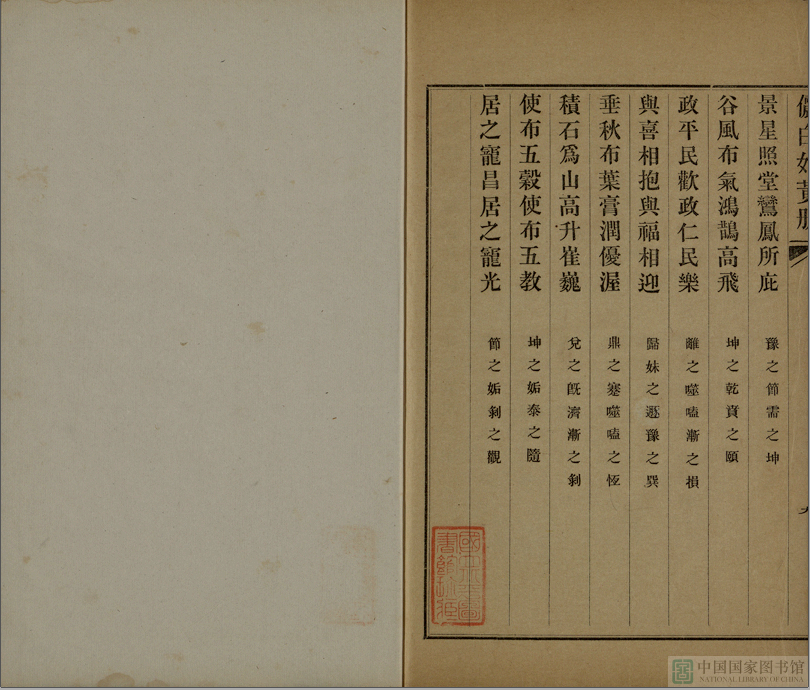 景星照堂鸞鳳所庇 豫之節需之坤
谷風布氣鴻鵠高飛 坤之乾賁之頤
政平民歡政仁民樂 離之噬嗑漸之損
與喜相抱與福相迎 歸妹之遯豫之巽
垂秋布葉膏潤優渥 鼎之蹇噬嗑之恆
積石爲山高升崔巍 兌之旣濟漸之剝
使布五穀使布五教 坤之姤泰之隨
居之寵昌居之寵光 節之姤剝之觀
中国国家图书馆
NATIONAL LIBRARY OF CHINA